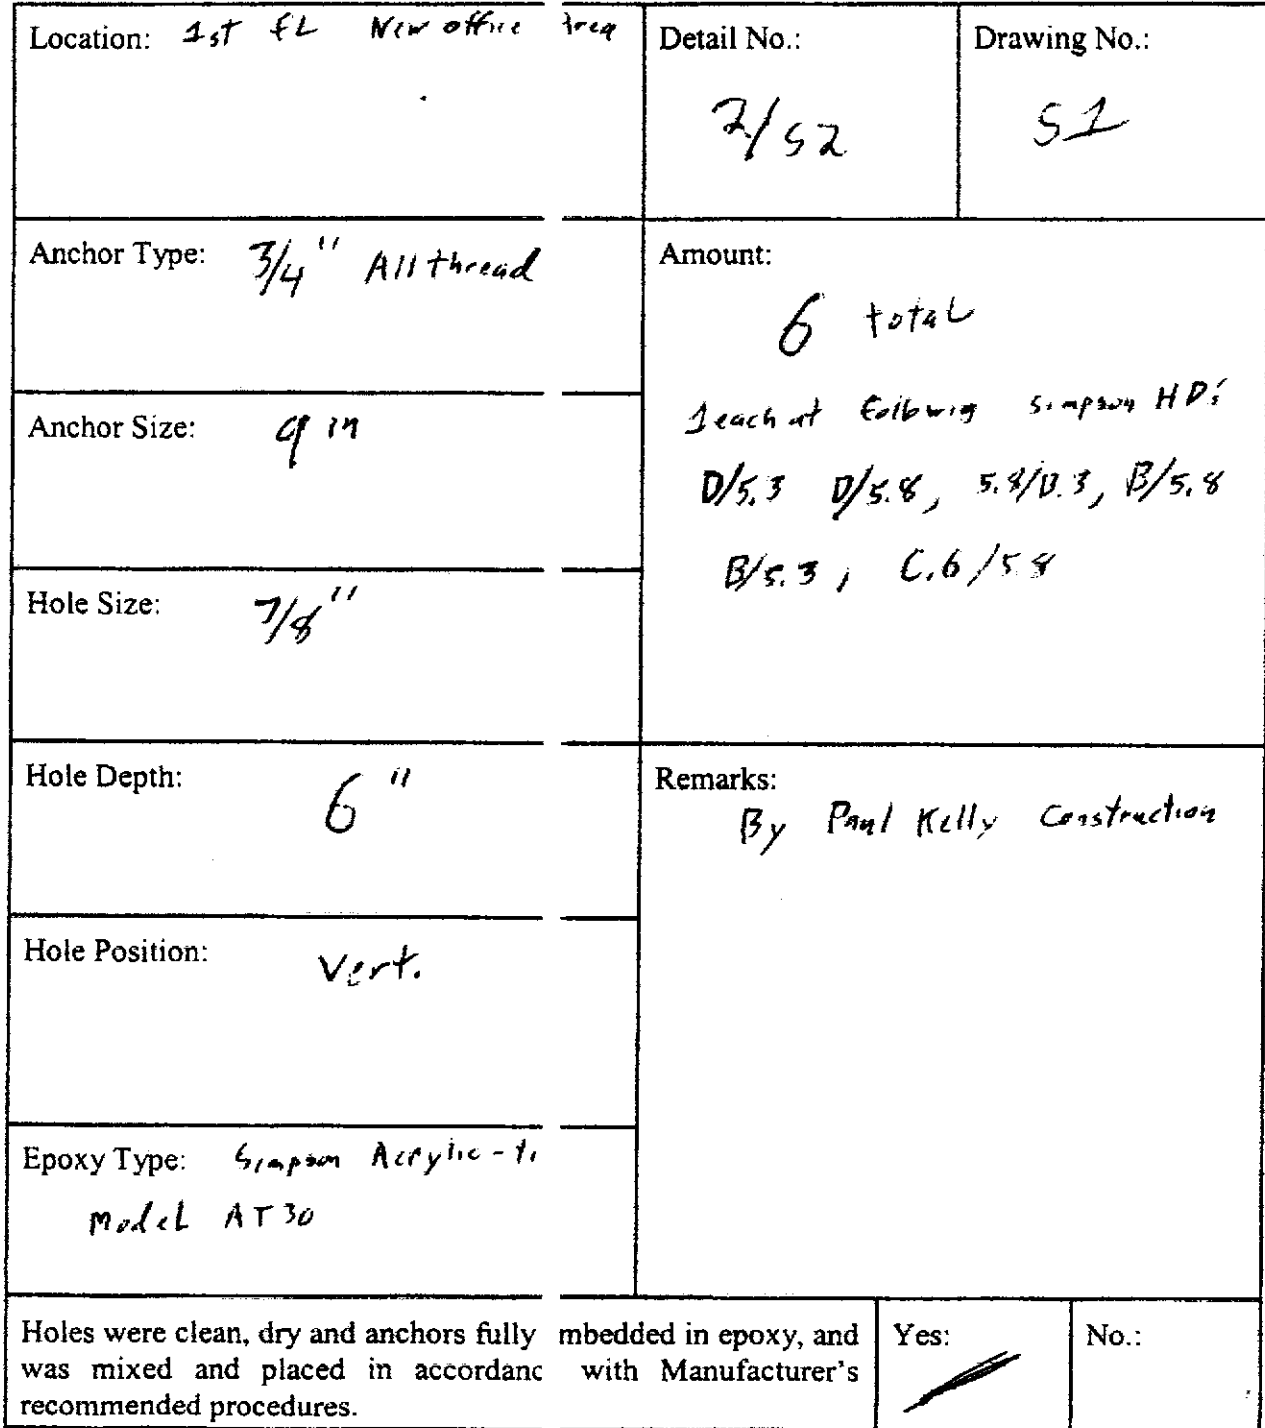 Location: 1st FL New office Area
Detail No.:
2/S2
Drawing No.:
S1
Anchor Type: 3/4" All thread
Amount:
6 total
1 each at Simpson HD's
D/5.3 D/5.8, 5.8/D.3, B/5.8
B/5.3, C.6/5.8
Anchor Size: 9 in
Hole Size: 7/8"
Hole Depth: 6"
Remarks:
By Paul Kelly Construction
Hole Position: Vert.
Epoxy Type: Simpson Acrylic-ti
Model AT30
Holes were clean, dry and anchors fully mbedded in epoxy, and
was mixed and placed in accordanc with Manufacturer's
recommended procedures.
Yes:
No.: